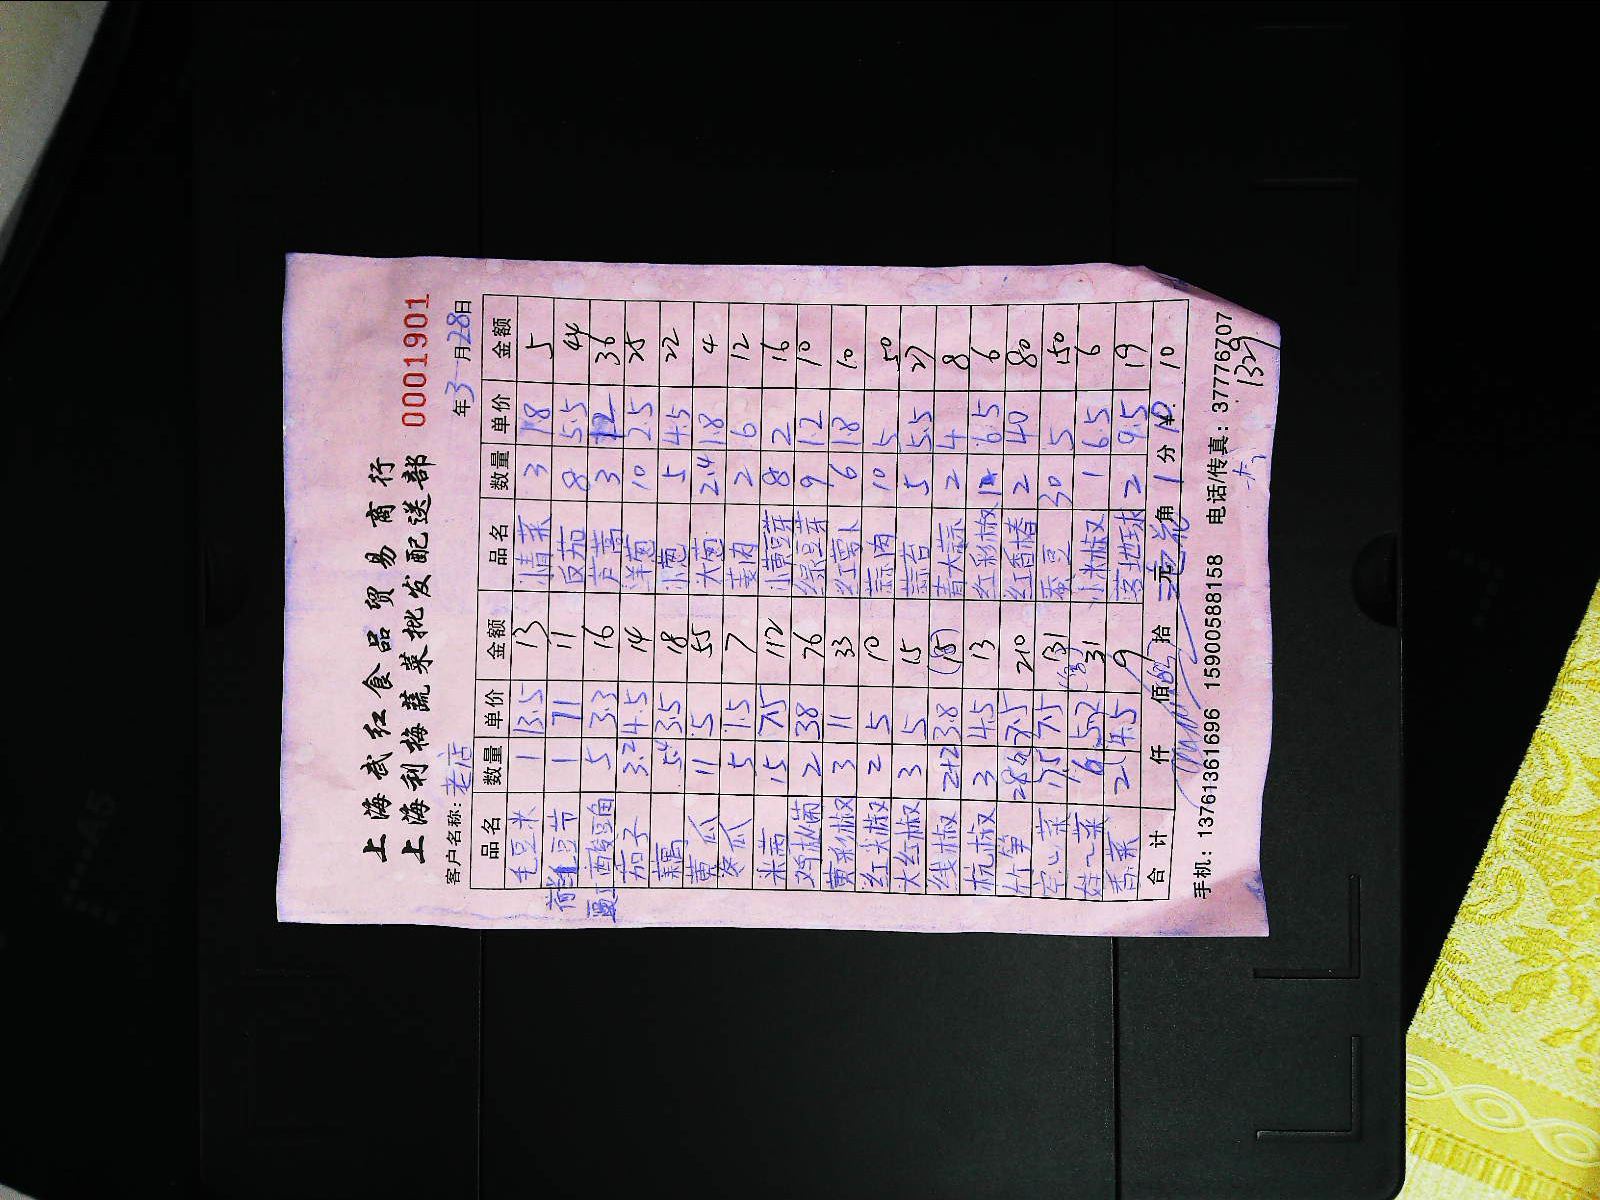 上海武红食品贸易商行
上海利梅蔬菜批发配送部 0001901
客户名称: 老店 年 3 月 28 日
品名 数量 单价 金额 品名 数量 单价 金额
毛豆米 1 13.5 13 小青菜 3 1.8 5
1 11 11 反茄 8 5.5 44
酸豆角 5 3.3 16 芦蒿 3 12 36
茄子 3.2 4.5 14 洋葱 10 2.5 25
莴 5.4 3.5 18 小葱 5 4.5 22
黄瓜 11 5 55 大葱 2.4 1.8 4
冬瓜 5 1.5 7 姜肉 2 6 12
米苋 15 7.5 112 小黄豆芽 8 2 16
鸡枞菌 2 38 76 绿豆芽 9 12 10
黄彩椒 3 11 33 红萝卜 6 1.8 10
红尖椒 2 5 10 蒜肉 10 5 50
大红椒 3 5 15 蒜苔 5 5.5 27
线椒 2+2 3.8 (15) 青大蒜 2 4 8
杭椒 3 4.5 13 红彩椒 1 6.5 6
竹笋 28 7.5 210 红香椿 2 40 80
空心菜 17.5 7.5 131 蚕豆 30 5 150
6 5.2 31 小米椒 1 6.5 6
香菜 2 4.5 9 2 9.5 19
合计 仟 佰 拾 元 角 1 分 ¥: 10 10
手机: 13761361696 15900588158 电话/传真: 37776707
1329